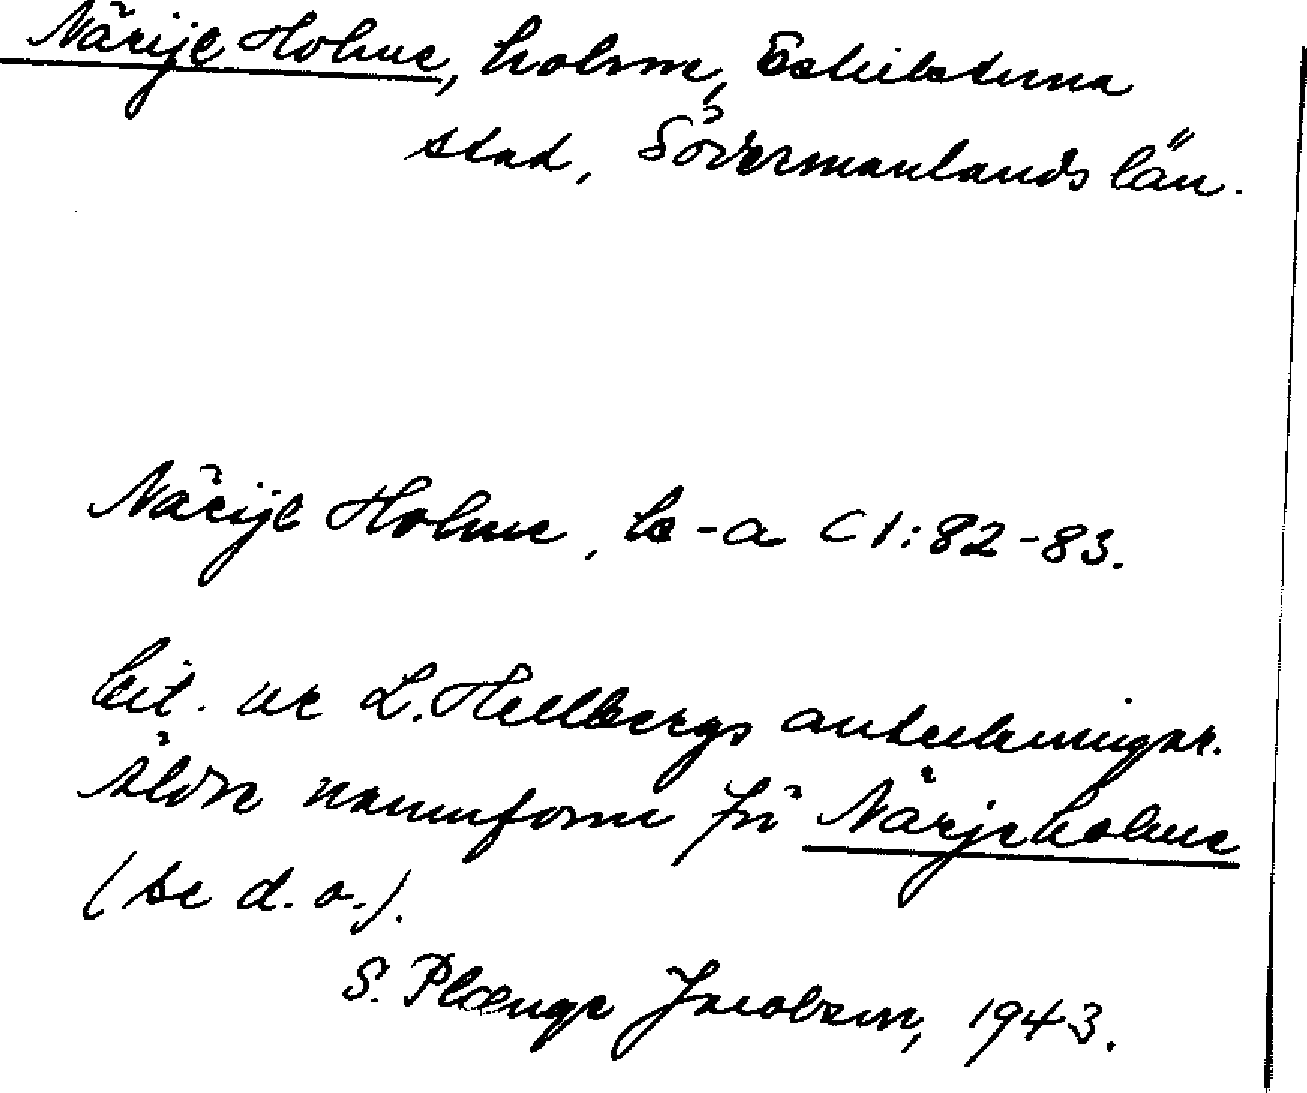 Närije Holme, holme, Eskilstuna
stad, Södermanlands län.
Närije Holme, ls-a C1:82-83.
Cit. ur L. Hellbergs anteckningar.
Äldre namnform för Närjeholme
(se d.o.).
S. Plænge Jacobson, 1943.